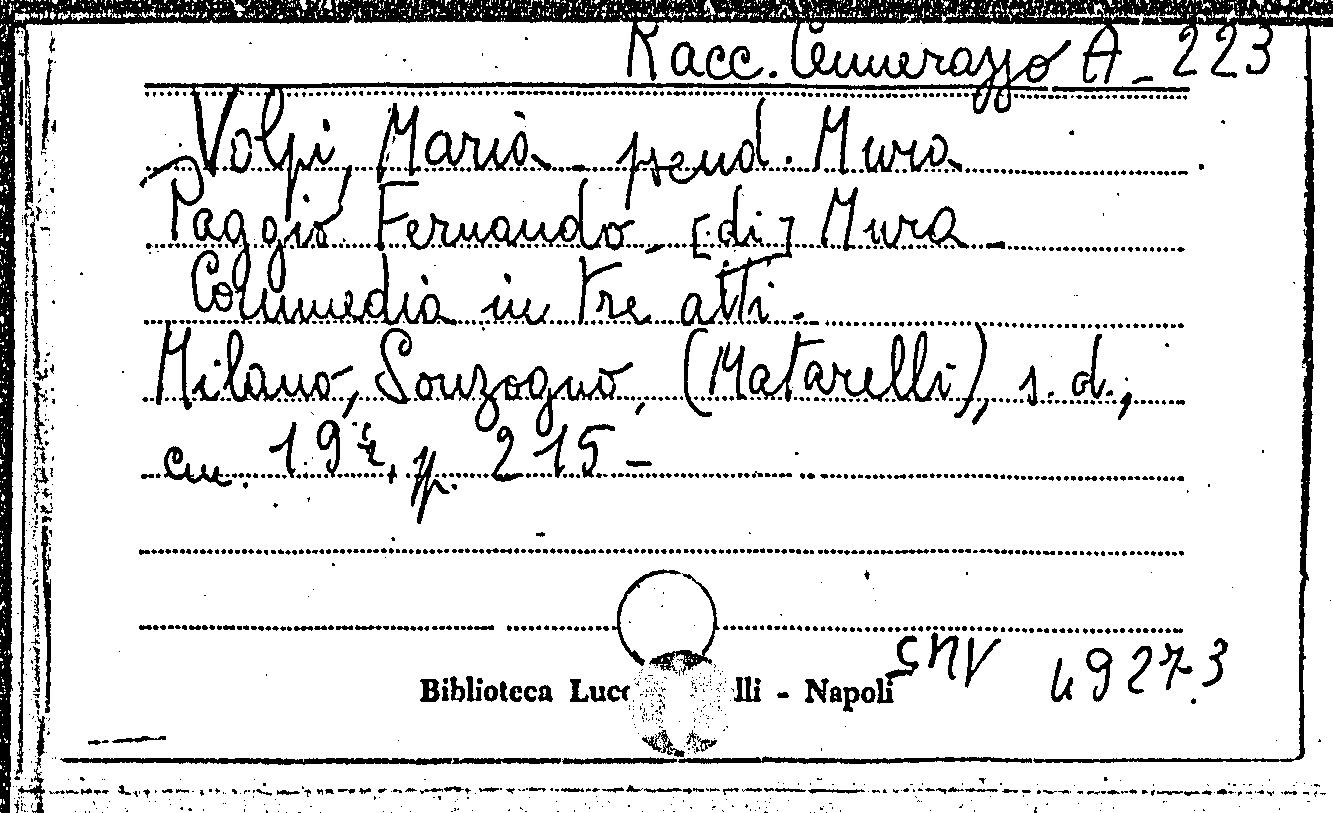 Racc. Cennerazzo A-223
Volpi, Maria - pseud. Mura
Paggio Fernando - [di] Mura -
Commedia in tre atti.
Milano, Sonzogno, (Matarelli), s.d.,
cm. 19½, pp. 215 -
49273
Biblioteca Lucc lli - Napoli